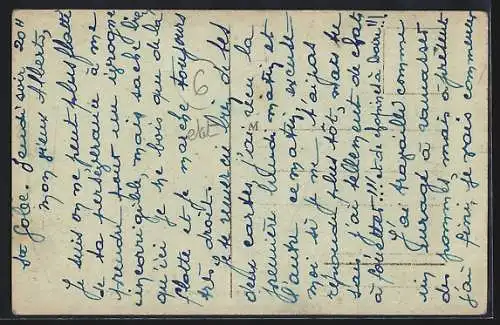 Ste Gobe. Jeudi soir 20H
mon vieux Albert,
Je suis on ne peut plus flatté
de ta persévérance à me
traiter pour un ivrogne
incorrigible, mais sache bien
qu'ici je ne bois que de la
flotte et je marche toujours
très droit.
Je te remercie bien de tes
deux cartes, j'ai reçu la
première lundi matin et
l'autre ce matin, excuse
moi si je ne t'ai pas
répondu plus tôt, mais tu
sais j'ai tellement de chats
à fouetter!!! et de à Dom!!!
J'ai travaillé comme
un enragé à ramasser
des pommes, mais à présent
j'ai fini, je vais commencer
6
M